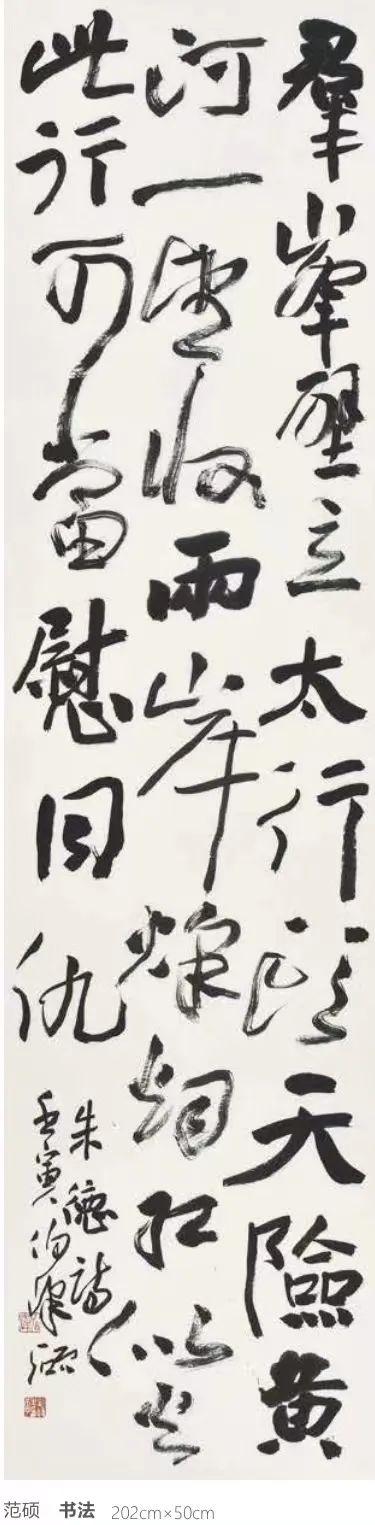 羣峯壁立太行頭天險黄
河一望收兩岸烽烟红似火
此行可當慰同仇
朱德詩
壬寅
范硕 书法 202cm×50cm